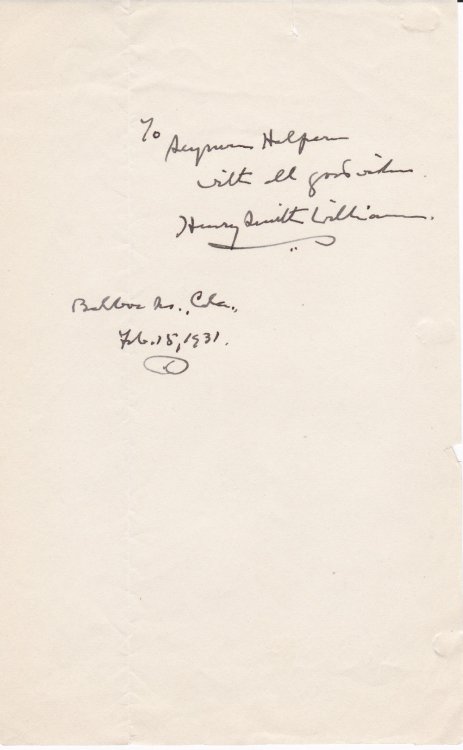 To
Seymour Halpern
with all good wishes.
Henry Smith Williams.
Balboa Is., Cala.,
Feb. 15, 1931.